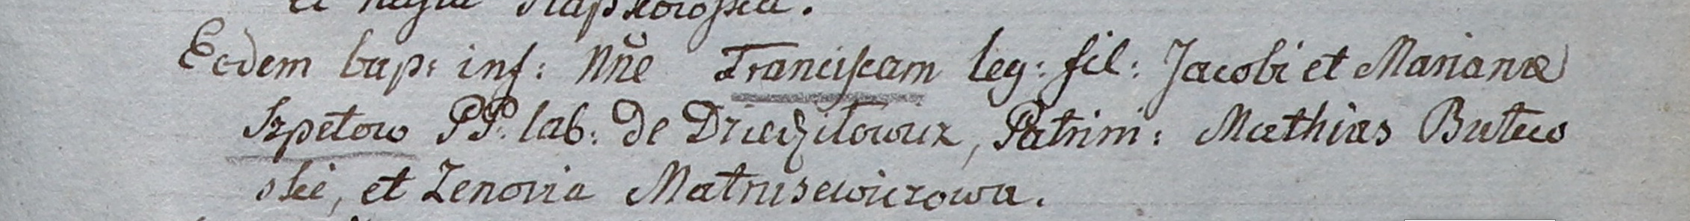 et
Eodem bap: inf: Nn̄e Franciscam leg: fil: Jacobi et Marianæ
Szpetow PP. lab: de Dziedziłowicz, Patrim: Mathias Butew
ski, et Zenovia Matrusewiczowa.